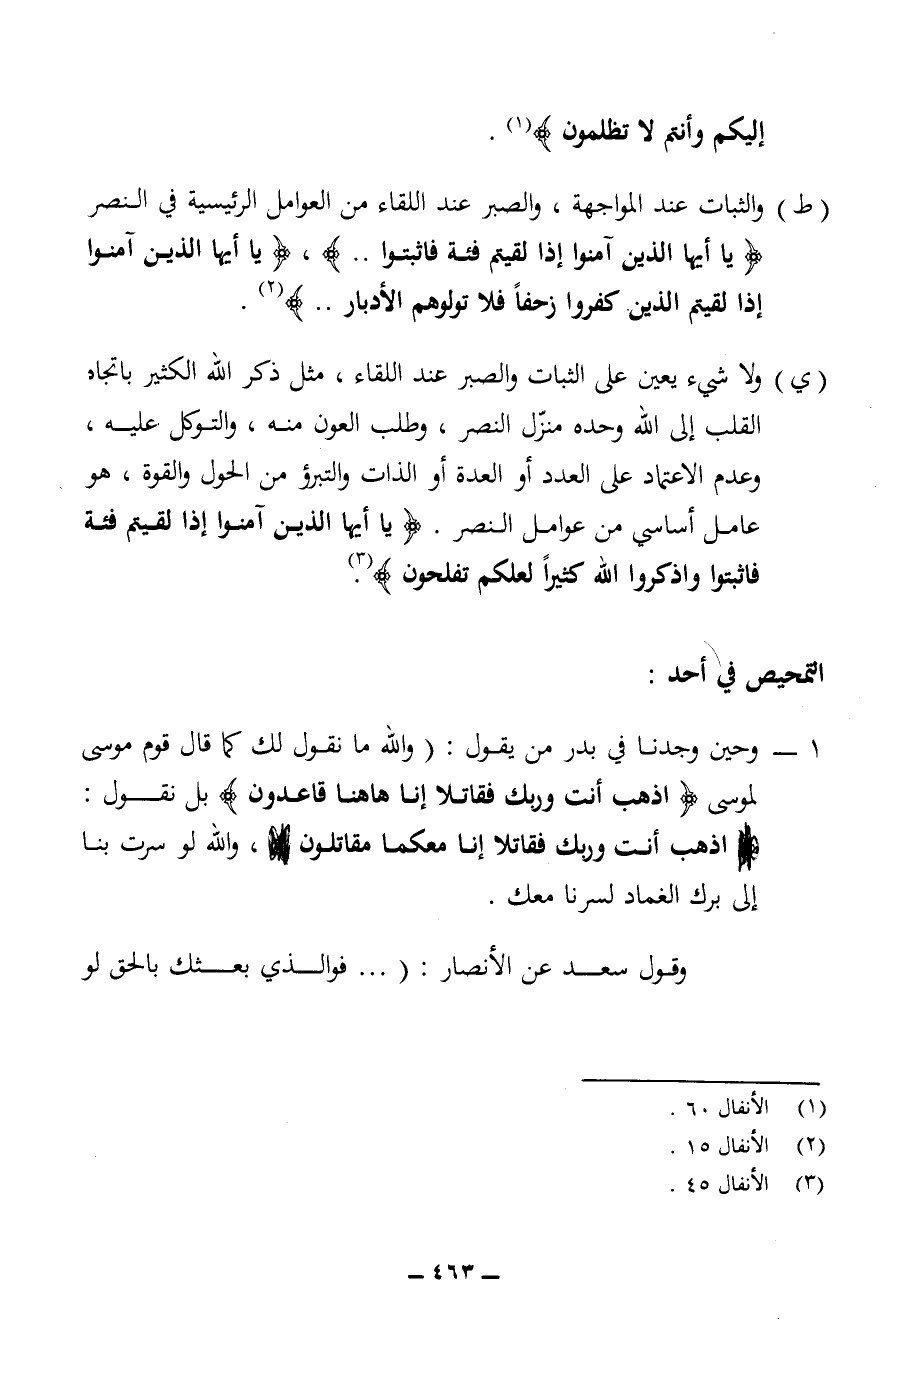 إليكم وأنتم لا تظلمون ﴾(١) .
( ط ) والثبات عند المواجهة ، والصبر عند اللقاء من العوامل الرئيسية في النصر
﴿ يا أيها الذين آمنوا إذا لقيتم فئة فاثبتوا .. ﴾ ، ﴿ يا أيها الذين آمنوا
إذا لقيتم الذين كفروا زحفاً فلا تولوهم الأدبار .. ﴾(٢) .
( ي ) ولا شيء يعين على الثبات والصبر عند اللقاء ، مثل ذكر الله الكثير باتجاه
القلب إلى الله وحده منزّل النصر ، وطلب العون منه ، والتوكل عليه ،
وعدم الاعتماد على العدد أو العدة أو الذات والتبرؤ من الحول والقوة ، هو
عامل أساسي من عوامل النصر . ﴿ يا أيها الذين آمنوا إذا لقيتم فئة
فاثبتوا واذكروا الله كثيراً لعلكم تفلحون ﴾(٣).
التمحيص في أحد :
١ ــ وحين وجدنا في بدر من يقول : ( والله ما نقول لك كما قال قوم موسى
لموسى ﴿ اذهب أنت وربك فقاتلا إنا هاهنا قاعدون ﴾ بل نقول :
اذهب أنت وربك فقاتلا إنا معكما مقاتلون ، والله لو سرت بنا
إلى برك الغماد لسرنا معك .
وقول سعد عن الأنصار : ( ... فوالذي بعثك بالحق لو
(١) الأنفال ٦٠ .
(٢) الأنفال ١٥ .
(٣) الأنفال ٤٥ .
ــ ٤٦٣ ــ